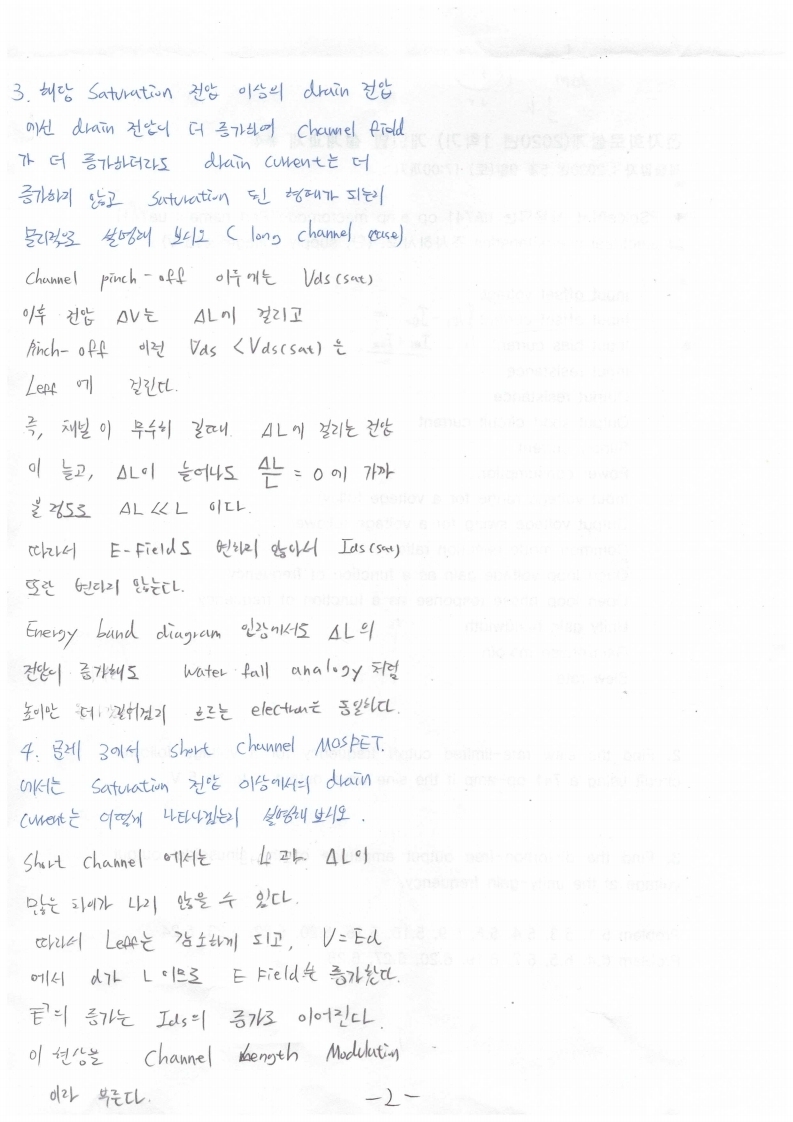 3. 해당 Saturation 전압 이상의 drain 전압
에선 drain 전압이 더 증가하여 Channel field
가 더 증가하더라도 drain current는 더
증가하지 않고 Saturation 된 형태가 되는지
물리적으로 설명해 보시오 ( long channel case)
Channel pinch-off 이후에는 Vds(sat)
이후 전압 ΔV는 ΔL에 걸리고
Pinch-off 이전 Vds < Vds(sat) 은
Leff 에 걸린다.
즉, 채널이 무수히 길때 ΔL에 걸리는 전압
이 늘고, ΔL이 늘어나도 ΔL/L = 0 에 가까
울 정도로 ΔL << L 이다.
따라서 E-Field도 변하지 않아서 Ids(sat)
또한 변하지 않는다.
Energy band diagram 입장에서도 ΔL의
전압이 증가해도 Water fall analogy 처럼
높이만 더 길어졌지 흐르는 electron은 동일하다.
4. 문제 3에서 Short Channel MOSFET.
에서는 Saturation 전압 이상에서의 drain
current는 어떻게 나타나겠는지 설명해 보시오.
Short channel 에서는 L 과 ΔL이
많은 차이가 나지 않을 수 있다.
따라서 Leff는 감소하게 되고, V=Ed
에서 d가 L 이므로 E Field는 증가한다.
E의 증가는 Ids의 증가로 이어진다.
이 현상을 Channel Length Modulation
이라 부른다.
-2-